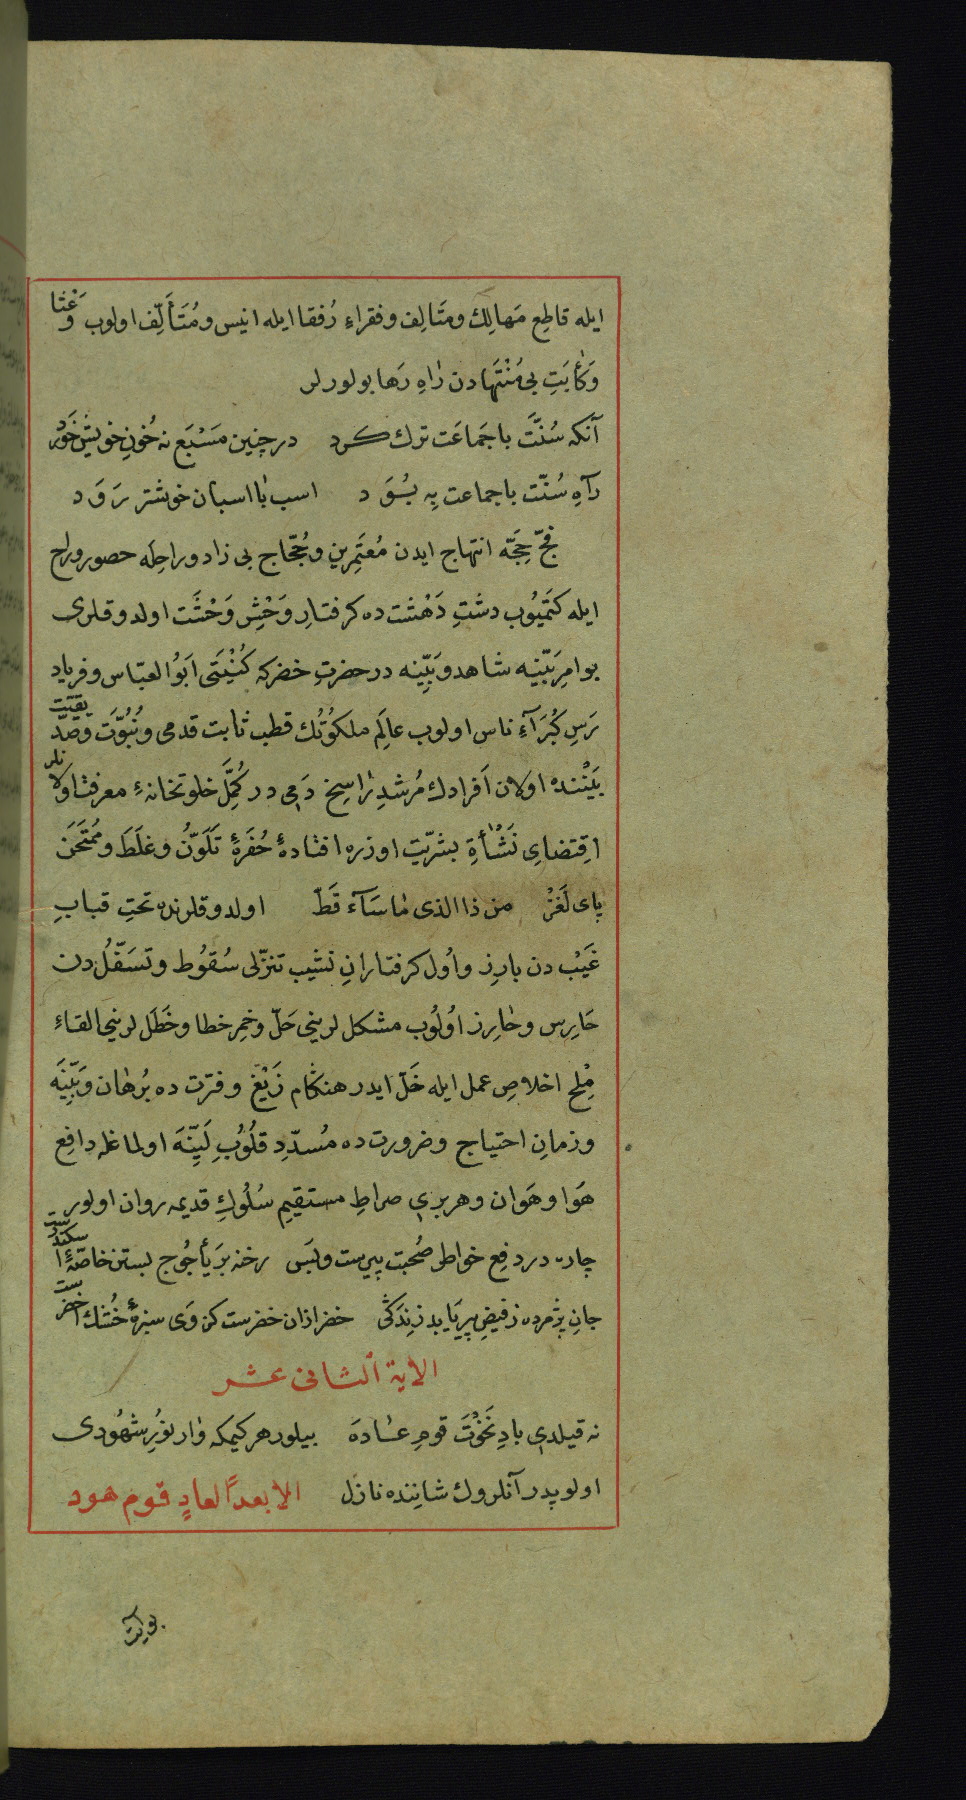 ايله قاطع مَهالِك ومتَالِف وفقراءِ رُفقا ايله انيس ومُتَأَلِّف اولوب وَعْثا
وَكَأبَتِ بى مُنْتَهادن رَاهِ رَها بولورلر
آنكه سُنَّت با جَماعَت ترك كرد درچنين مَسْبَع نه خُونِ خويش خَورد
رَاهِ سُنّت با جماعت بِه بُوَد اسب با اسبان خوشتر رَوَد
فجّ حِجَّه انتهاج ايدن مُعتَمِرين وحُجّاج بى زاد وراحِلَه حصور وراح
ايله كتَمْيُوب دشتِ دَهْشت ده كرفتارِ وَحْشِ وَحْشَت اولدوقلرى
بو امرِ بَيِّنيه شاهد وبَيِّنه در حضرتِ خضر كه كُنْيَتى ابَوُ العبّاس وفرياد
رَسِ كُبَرَآءِ ناس اولوب عالَمِ ملكوُتُك قطب ثابت قدمى ونُبُوَّت وصدّيقيت
بَيْننده اولان اَفرادك مُرشدِ رَاسِخ دَمى در كُمَّلِ خلوتخانهٔ معرفت اولانلر
اقتضاىِ نَشْأَةِ بشريّت اوزره افتادهٔ حُفَرهٔ تَلَوُّن وغلَطَ ومُمْتَحَن
پاى لَغز من ذا الذى مٰا سَآء قَطّ اولدوقلرنده تحتِ قبابِ
غَيْب دن بارِز واول كرفتارانِ نشيب تنزّلى سُقوُط وتسَفّلُدن
حَارِس وحٰارِز اوُلُوب مشكل لرينى حَلّ وخمرِ خطا وخَطَل لرينى القاءِ
مِلْح اخلاصِ عمل ايله خَلّ ايدر هنكام زَيْغ وفترت ده بُرهان وبَيِّنَه
وزمانِ احتياج وضرورت ده مُسدّدِ قلُوُبِ لَيِّنَه اولماغله دافِع
هَوا وهَوان وهر برى صراطِ مستقيمِ سُلُوكِ قديمه روان اولور
چاره در دفع خواطر صُحبت پيرست وبَس رخنه بر يَأجُوج بستن خاصّهٔ اسكندرست
جانِ پژمرده ز فيضِ پير يَابد زِندَكى خضر ازان خضرست كز وَى سبزهٔ خُشك اخضرست
الاية الثانى عشر
نه قيلدى بادِ نَخْوَت قومِ عٰادَه بيلور هر كيمكه وار نوُرِ شهُودى
اولوپدر آنلروك شانِنده نازل الا بعدًا لعادٍ قوم هود
بو آيت